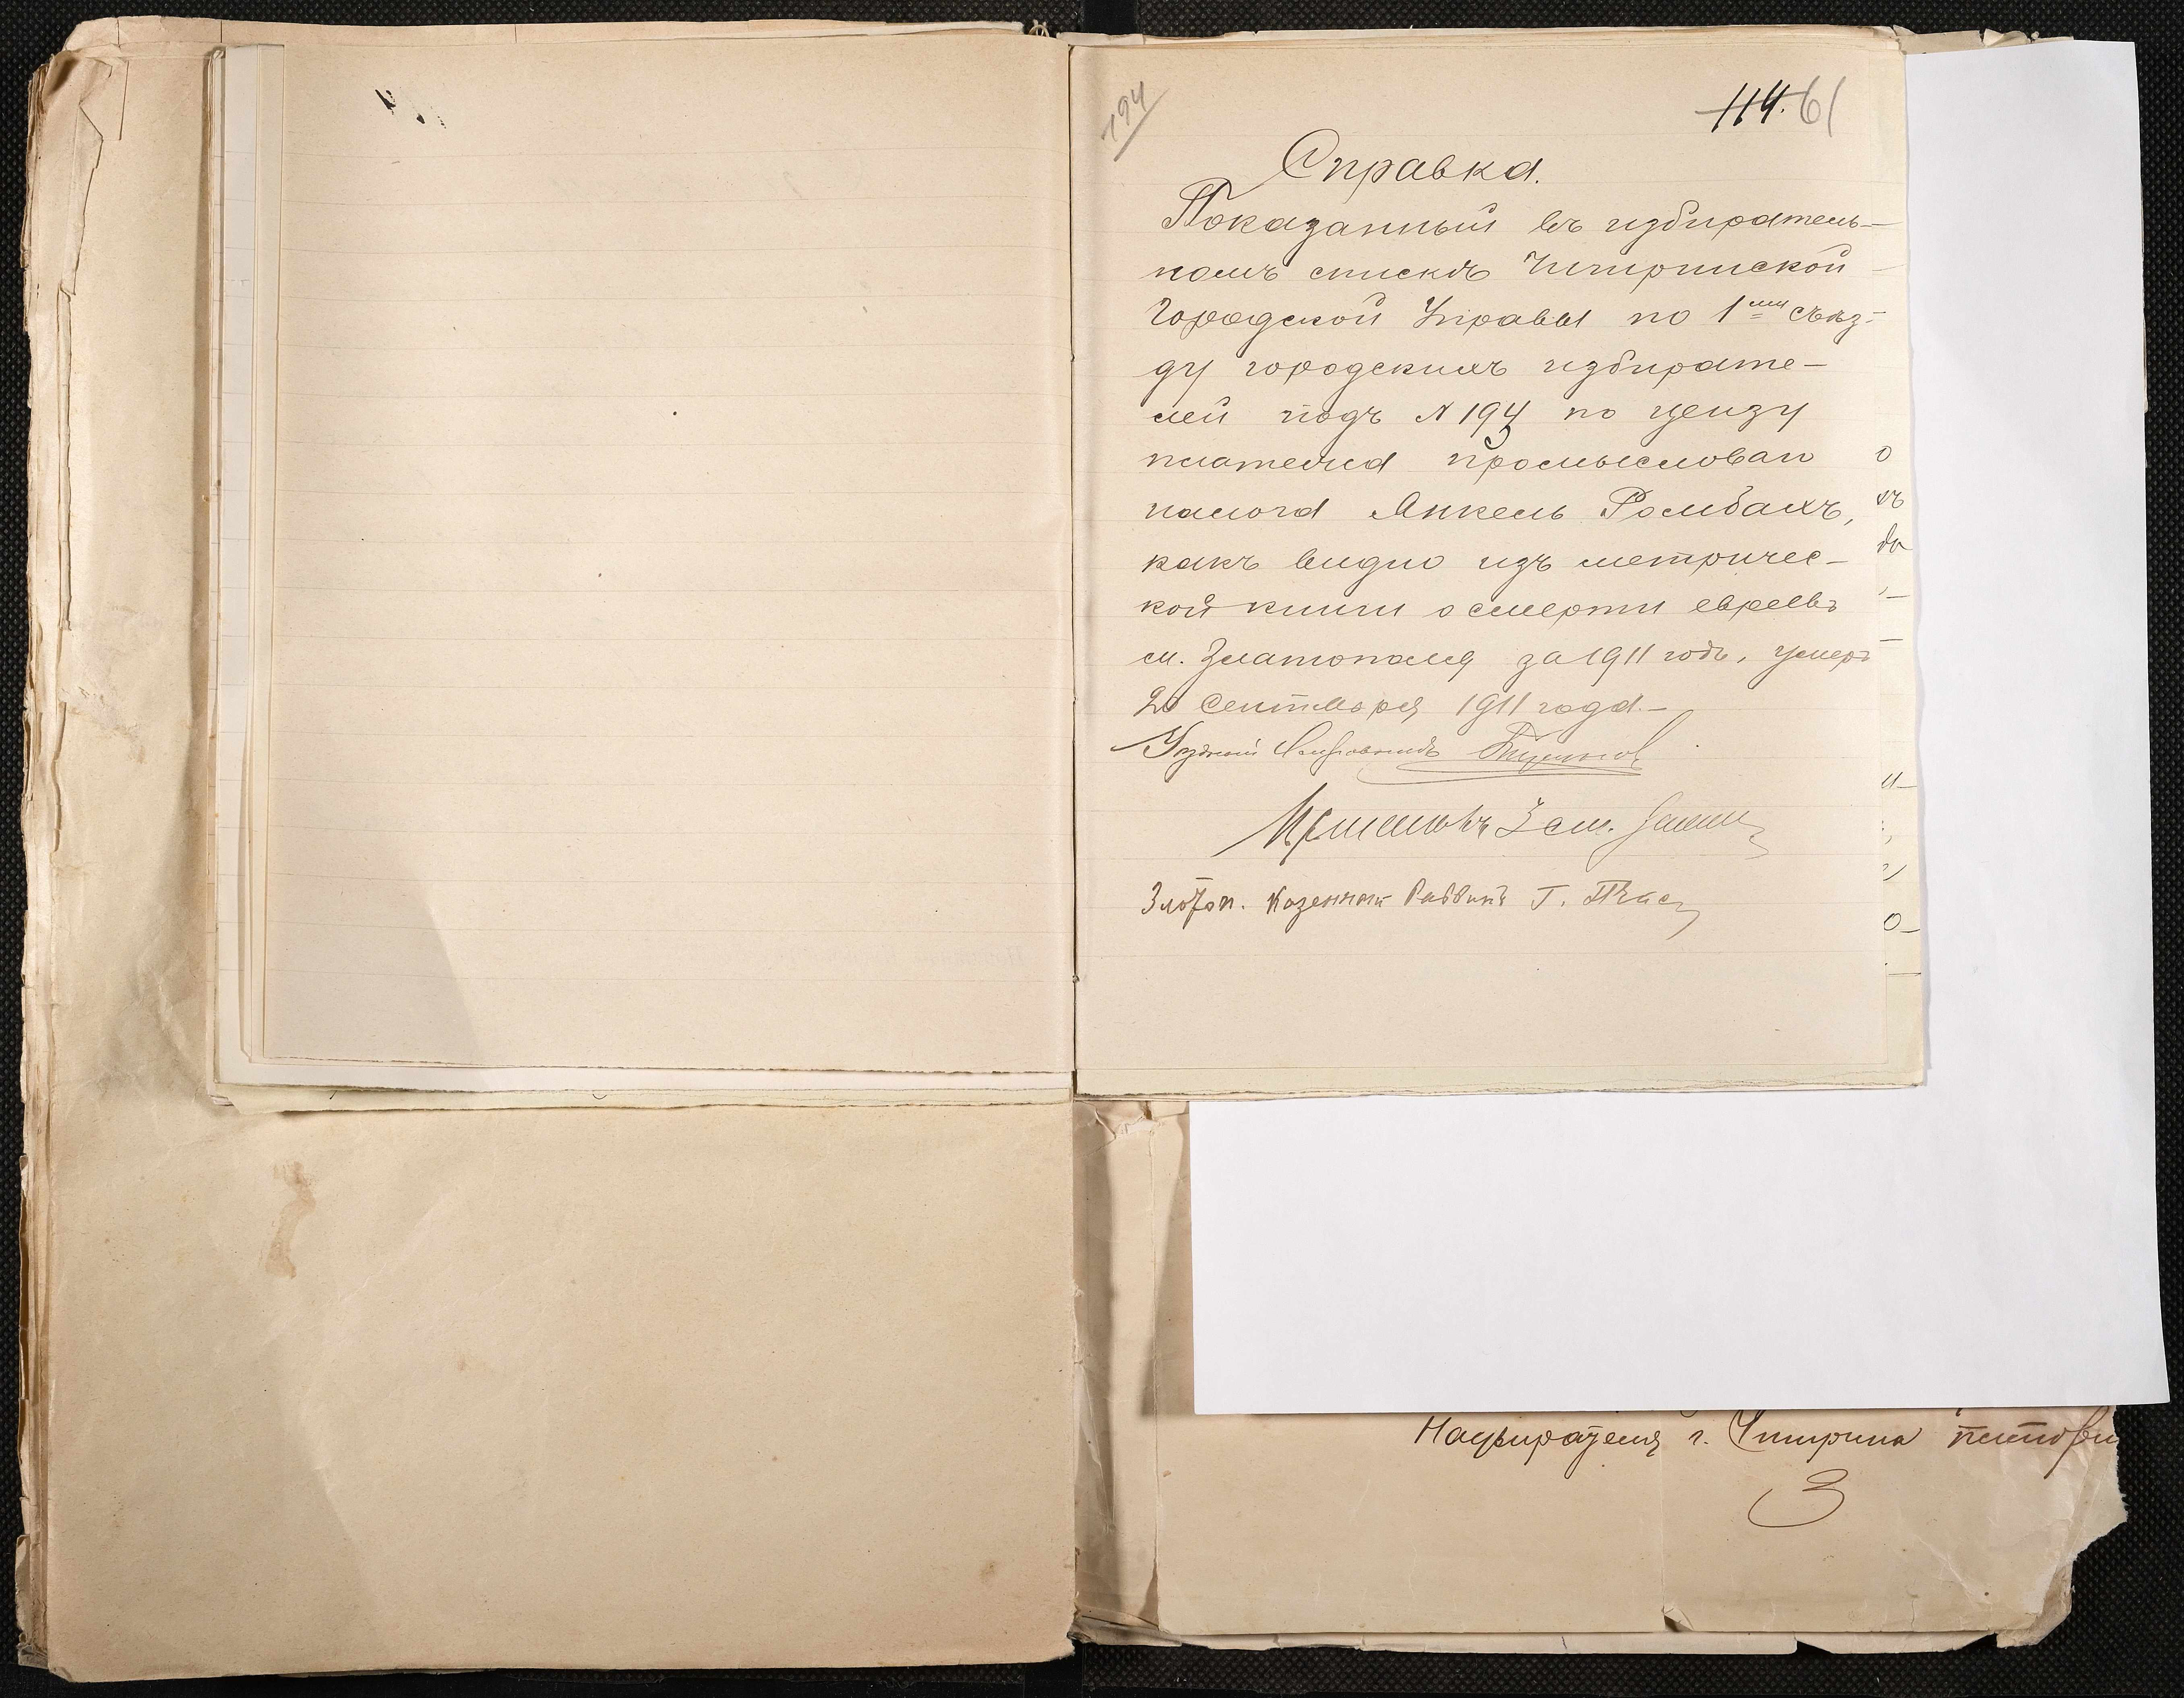 194
114. 61
Справка.
Показанный въ избиратель-
номъ спискѣ Чигиринской
Городской Управы по 1му съѣз-
ду городскихъ избирате-
лей подъ № 194 по цензу
платежа промысловаго
налога Янкель Ромбахъ,
какъ видно изъ метричес-
кой книги о смерти евреевъ
м. Златополя за 1911 годъ, умеръ
20 Сентября 1911 года.-
Уѣздный Исправникъ
Златоп. Казенный Раввинъ Г.
г. Чигирина